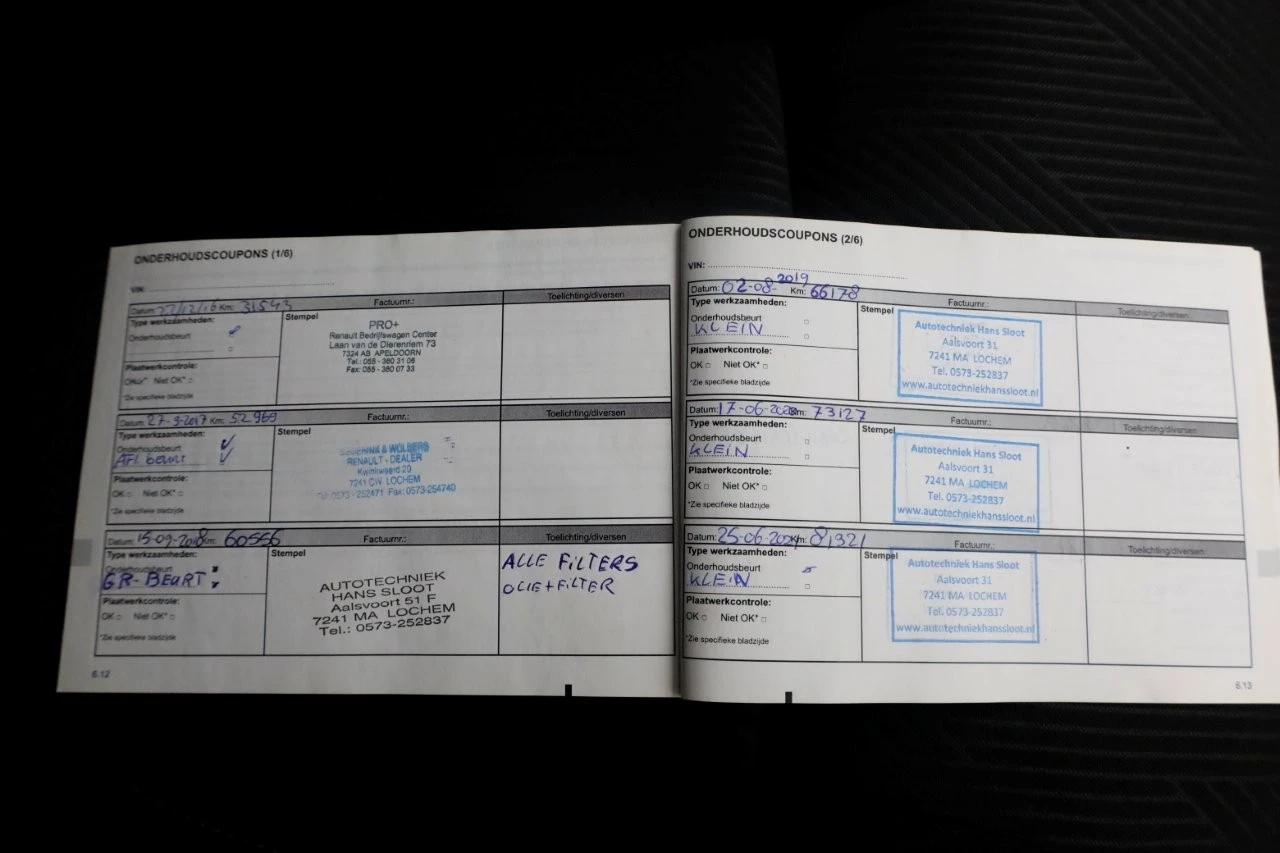 ONDERHOUDSCOUPONS (1/6)
VIN:
Datum: 22/12/16 Km: 31543 Factuurnr.: Toelichting/diversen
Type werkzaamheden:
Stempel
Onderhoudsbeurt
PRO+
Renault Bedrijfswagen Center
Laan van de Dierenriem 73
7324 AB APELDOORN
Tel.: 055 - 360 31 06
Fax: 055 - 360 07 33
Plaatwerkcontrole:
OK Niet OK*
*Zie specifieke bladzijde
Datum: 27-3-2017 Km: 52969 Factuurnr.: Toelichting/diversen
Type werkzaamheden:
Stempel
Onderhoudsbeurt
AFL beurt
& WOLBERS
RENAULT - DEALER
20
7241 CW LOCHEM
Tel: 0573 - 252471 Fax: 0573-254740
Plaatwerkcontrole:
OK Niet OK*
*Zie specifieke bladzijde
Datum: 15-09-2018 Km: 60556 Factuurnr.: Toelichting/diversen
Type werkzaamheden:
Stempel
Onderhoudsbeurt
GR-BEURT
AUTOTECHNIEK
HANS SLOOT
Aalsvoort 51 F
7241 MA LOCHEM
Tel.: 0573-252837
ALLE FILTERS
OLIE+FILTER
Plaatwerkcontrole:
OK Niet OK*
*Zie specifieke bladzijde
6.12
ONDERHOUDSCOUPONS (2/6)
VIN:
Datum: 02-08-2019 Km: 66178 Factuurnr.: Toelichting/diversen
Type werkzaamheden:
Stempel
Onderhoudsbeurt
KLEIN
Autotechniek Hans Sloot
Aalsvoort 31
7241 MA LOCHEM
Tel. 0573-252837
www.autotechniekhanssloot.nl
Plaatwerkcontrole:
OK Niet OK*
*Zie specifieke bladzijde
Datum: 17-06-2020 Km: 73127 Factuurnr.: Toelichting/diversen
Type werkzaamheden:
Stempel
Onderhoudsbeurt
KLEIN
Autotechniek Hans Sloot
Aalsvoort 31
7241 MA LOCHEM
Tel. 0573-252837
www.autotechniekhanssloot.nl
Plaatwerkcontrole:
OK Niet OK*
*Zie specifieke bladzijde
Datum: 25-06-2021 Km: 81321 Factuurnr.: Toelichting/diversen
Type werkzaamheden:
Stempel
Onderhoudsbeurt
KLEIN
Autotechniek Hans Sloot
Aalsvoort 31
7241 MA LOCHEM
Tel. 0573-252837
www.autotechniekhanssloot.nl
Plaatwerkcontrole:
OK Niet OK*
*Zie specifieke bladzijde
6.13